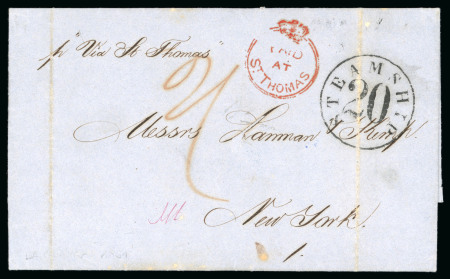 pr "Via St Thomas"
PAID
AT
ST THOMAS
STEAMSHIP
20
Messrs Lanman & Kemp.
New York.
1.